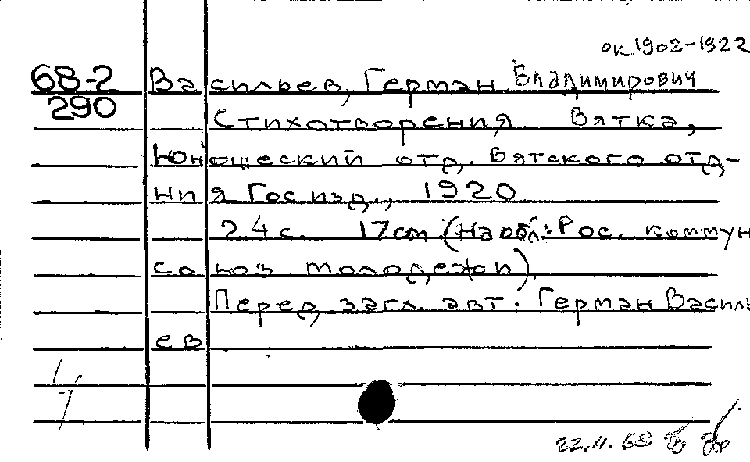 ок 1902-1922
68-2 Васильев, Герман Владимирович
290
Стихотворения Вятка,
Юношеский отд. Вятского отд-
ния Гос изд., 1920
24 с. 17 см (На обл.: Рос. коммун
союз молодежи)
Перед загл. авт: Герман Василь
ев
22.11.68